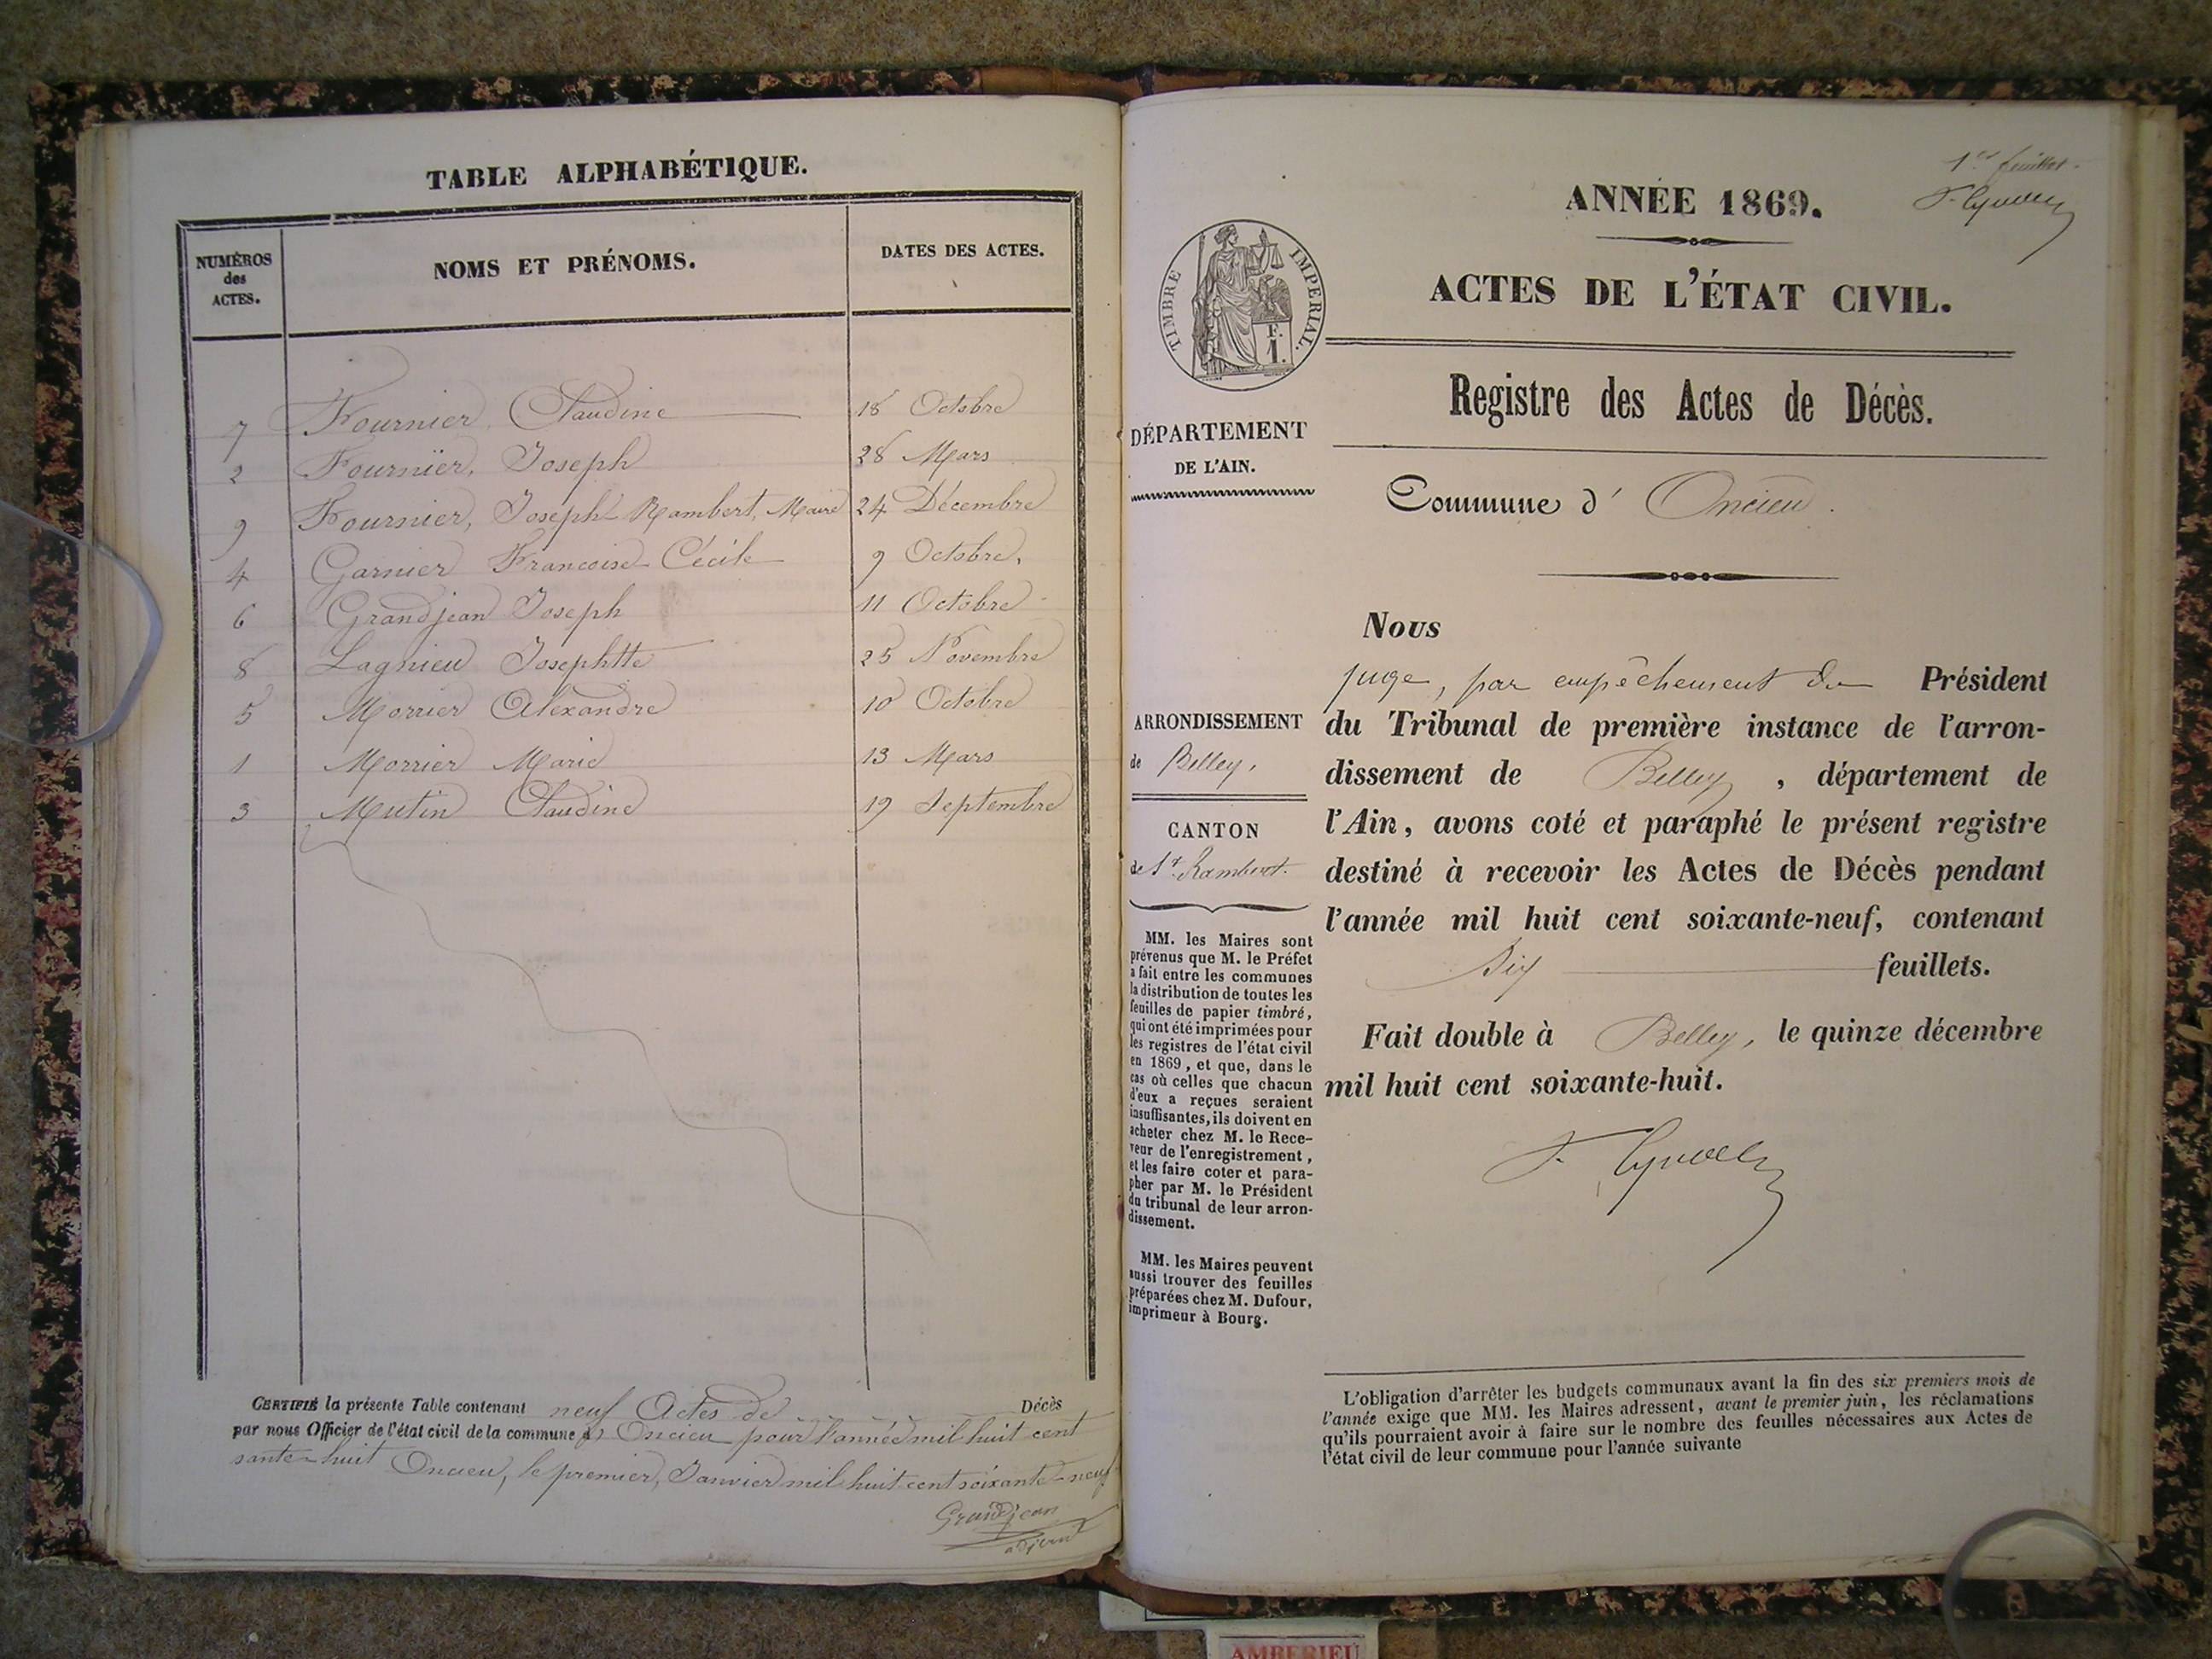 TABLE ALPHABÉTIQUE.
NUMÉROS des ACTES.
NOMS ET PRÉNOMS.
DATES DES ACTES.
7 Fournier, Claudine 18 Octobre
2 Fournier, Joseph 28 Mars
9 Fournier, Joseph Rambert, Maire 24 Décembre
4 Garnier Francoise Cécile 9 Octobre.
6 Grandjean Joseph 11 Octobre
8 Lagnieu Josephtte 25 Novembre
5 Morrier Alexandre 10 Octobre
1 Morrier Marie 13 Mars
3 Mutin Claudine 19 Septembre
CERTIFIÉ la présente Table contenant neuf Actes de Décès
par nous Officier de l'état civil de la commune d' Oncieu pour l'année mil huit cent
sante-huit Oncieu, le premier, Janvier mil huit cent soixante-neuf
Grandjean
adjoint
1er feuillet.
ANNÉE 1869.
ACTES DE L'ÉTAT CIVIL.
TIMBRE IMPERIAL.
F.
1.
Registre des Actes de Décès.
DÉPARTEMENT
DE L'AIN.
Commune d' Oncieu.
ARRONDISSEMENT
de Belley,
CANTON
de St Rambert.
MM. les Maires sont
prévenus que M. le Préfet
a fait entre les communes
la distribution de toutes les
feuilles de papier timbré,
qui ont été imprimées pour
les registres de l'état civil
en 1869, et que, dans le
cas où celles que chacun
d'eux a reçues seraient
insuffisantes, ils doivent en
acheter chez M. le Rece-
veur de l'enregistrement,
et les faire coter et para-
pher par M. le Président
du tribunal de leur arron-
dissement.
MM. les Maires peuvent
aussi trouver des feuilles
préparées chez M. Dufour,
imprimeur à Bourg.
Nous
juge, par empêchement du Président
du Tribunal de première instance de l'arron-
dissement de Belley, département de
l'Ain, avons coté et paraphé le présent registre
destiné à recevoir les Actes de Décès pendant
l'année mil huit cent soixante-neuf, contenant
Six feuillets.
Fait double à Belley, le quinze décembre
mil huit cent soixante-huit.
L'obligation d'arrêter les budgets communaux avant la fin des six premiers mois de
l'année exige que MM. les Maires adressent, avant le premier juin, les réclamations
qu'ils pourraient avoir à faire sur le nombre des feuilles nécessaires aux Actes de
l'état civil de leur commune pour l'année suivante
AMBERIEU